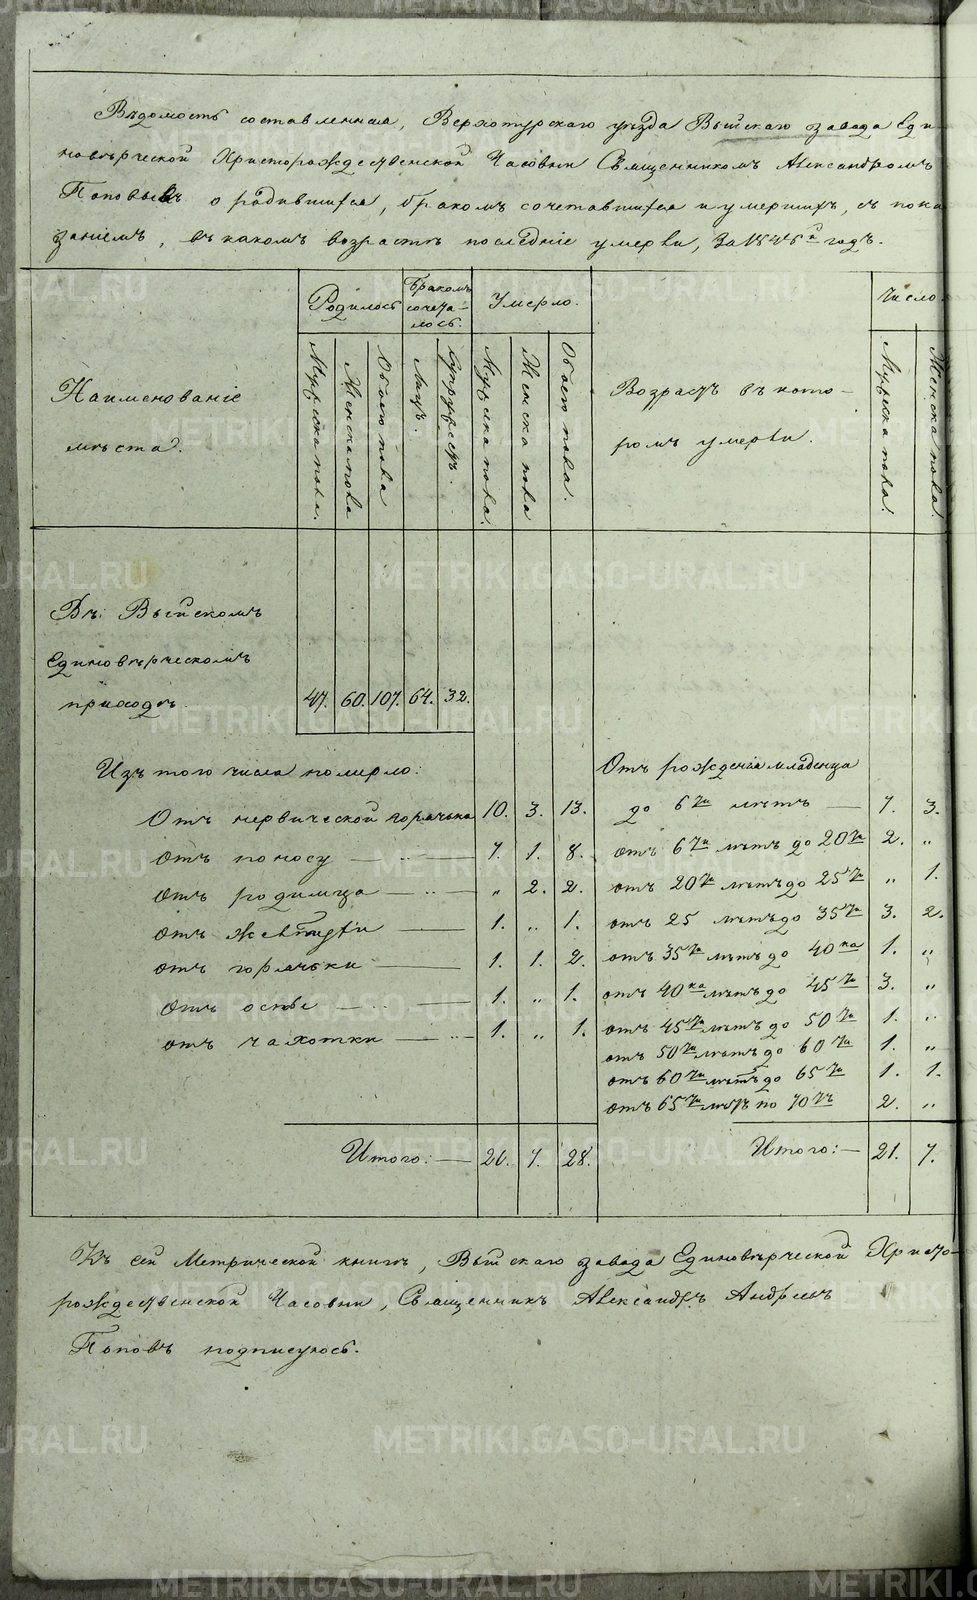 Вѣдомость составленная, Верхотурскаго уѣзда Выйскаго завода Еди-
новѣрческой Христорождественской Часовни Священникомъ Александромъ
Поповымъ о родившихся, бракомъ сочетавшихся и умершихъ, съ пока
заніемъ, въ какомъ возрастѣ последніе умерли, За 1845й годъ.
Наименованіе
мѣста.
Родилось
Бракомъ
сочета-
лось.
Умерло.
Мужеска пола.
Женска пола
Обоего пола
Лицъ.
Супружествъ.
Мужеска пола.
Женска пола
Обоего пола.
Возрастъ въ кото-
ромъ умерли.
Число.
Мужеска пола.
Женска пола.
Въ Выйскомъ
Единовѣрческомъ
приходѣ. 47. 60. 107. 64. 32.
Изъ того числа померло:
Отъ нервической горячки 10. 3. 13.
отъ поносу — „ — 7. 1. 8.
отъ родимца — „ — „ 2. 2.
отъ желтухи — 1. „ 1.
отъ горячки — 1. 1. 2.
отъ оспы — „ — 1. „ 1.
отъ чахотки — „ — 1. „ 1.
Итого: — 21. 7. 28.
Отъ рожденія младенца
до 6ти лѣтъ — 7. 3.
отъ 6ти лѣтъ до 20ти 2. „
отъ 20ти лѣтъ до 25ти „ 1.
отъ 25 лѣтъ до 35ти 3. 2.
отъ 35ти лѣтъ до 40ка 1. „
отъ 40ка лѣтъ до 45ти 3. „
отъ 45ти лѣтъ до 50ти 1. „
отъ 50ти лѣтъ до 60ти 1. „
отъ 60ти лѣтъ до 65ти 1. 1.
отъ 65ти лѣтъ по 70ть 2. „
Итого: — 21. 7.
Къ сей Метрической книгѣ, Выйскаго завода Единовѣрческой Христо-
рождественской Часовни, Священникъ Александръ Андреевъ
Поповъ подписуюсь.
METRIKI.GASO-URAL.RU